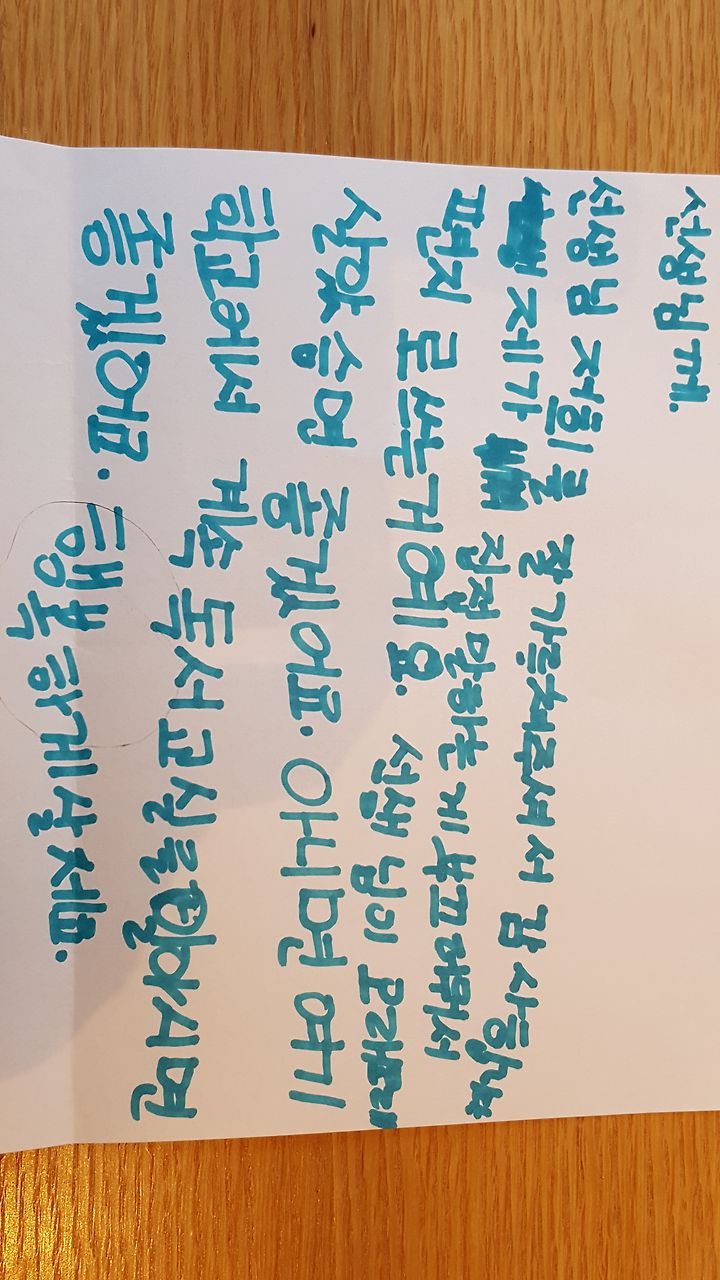 선생님께.
선생님 저희를 잘 가르쳐주셔서 감사합니다
제가 직접 말하는게 부끄러워서
편지 로쓰는거에요. 선생님이 오래오래
살앗으면 좋겠어요. 아니면 여기
학교에서 계속 독서교실을 하시면
좋겠어요. 행복하게 삼세요.